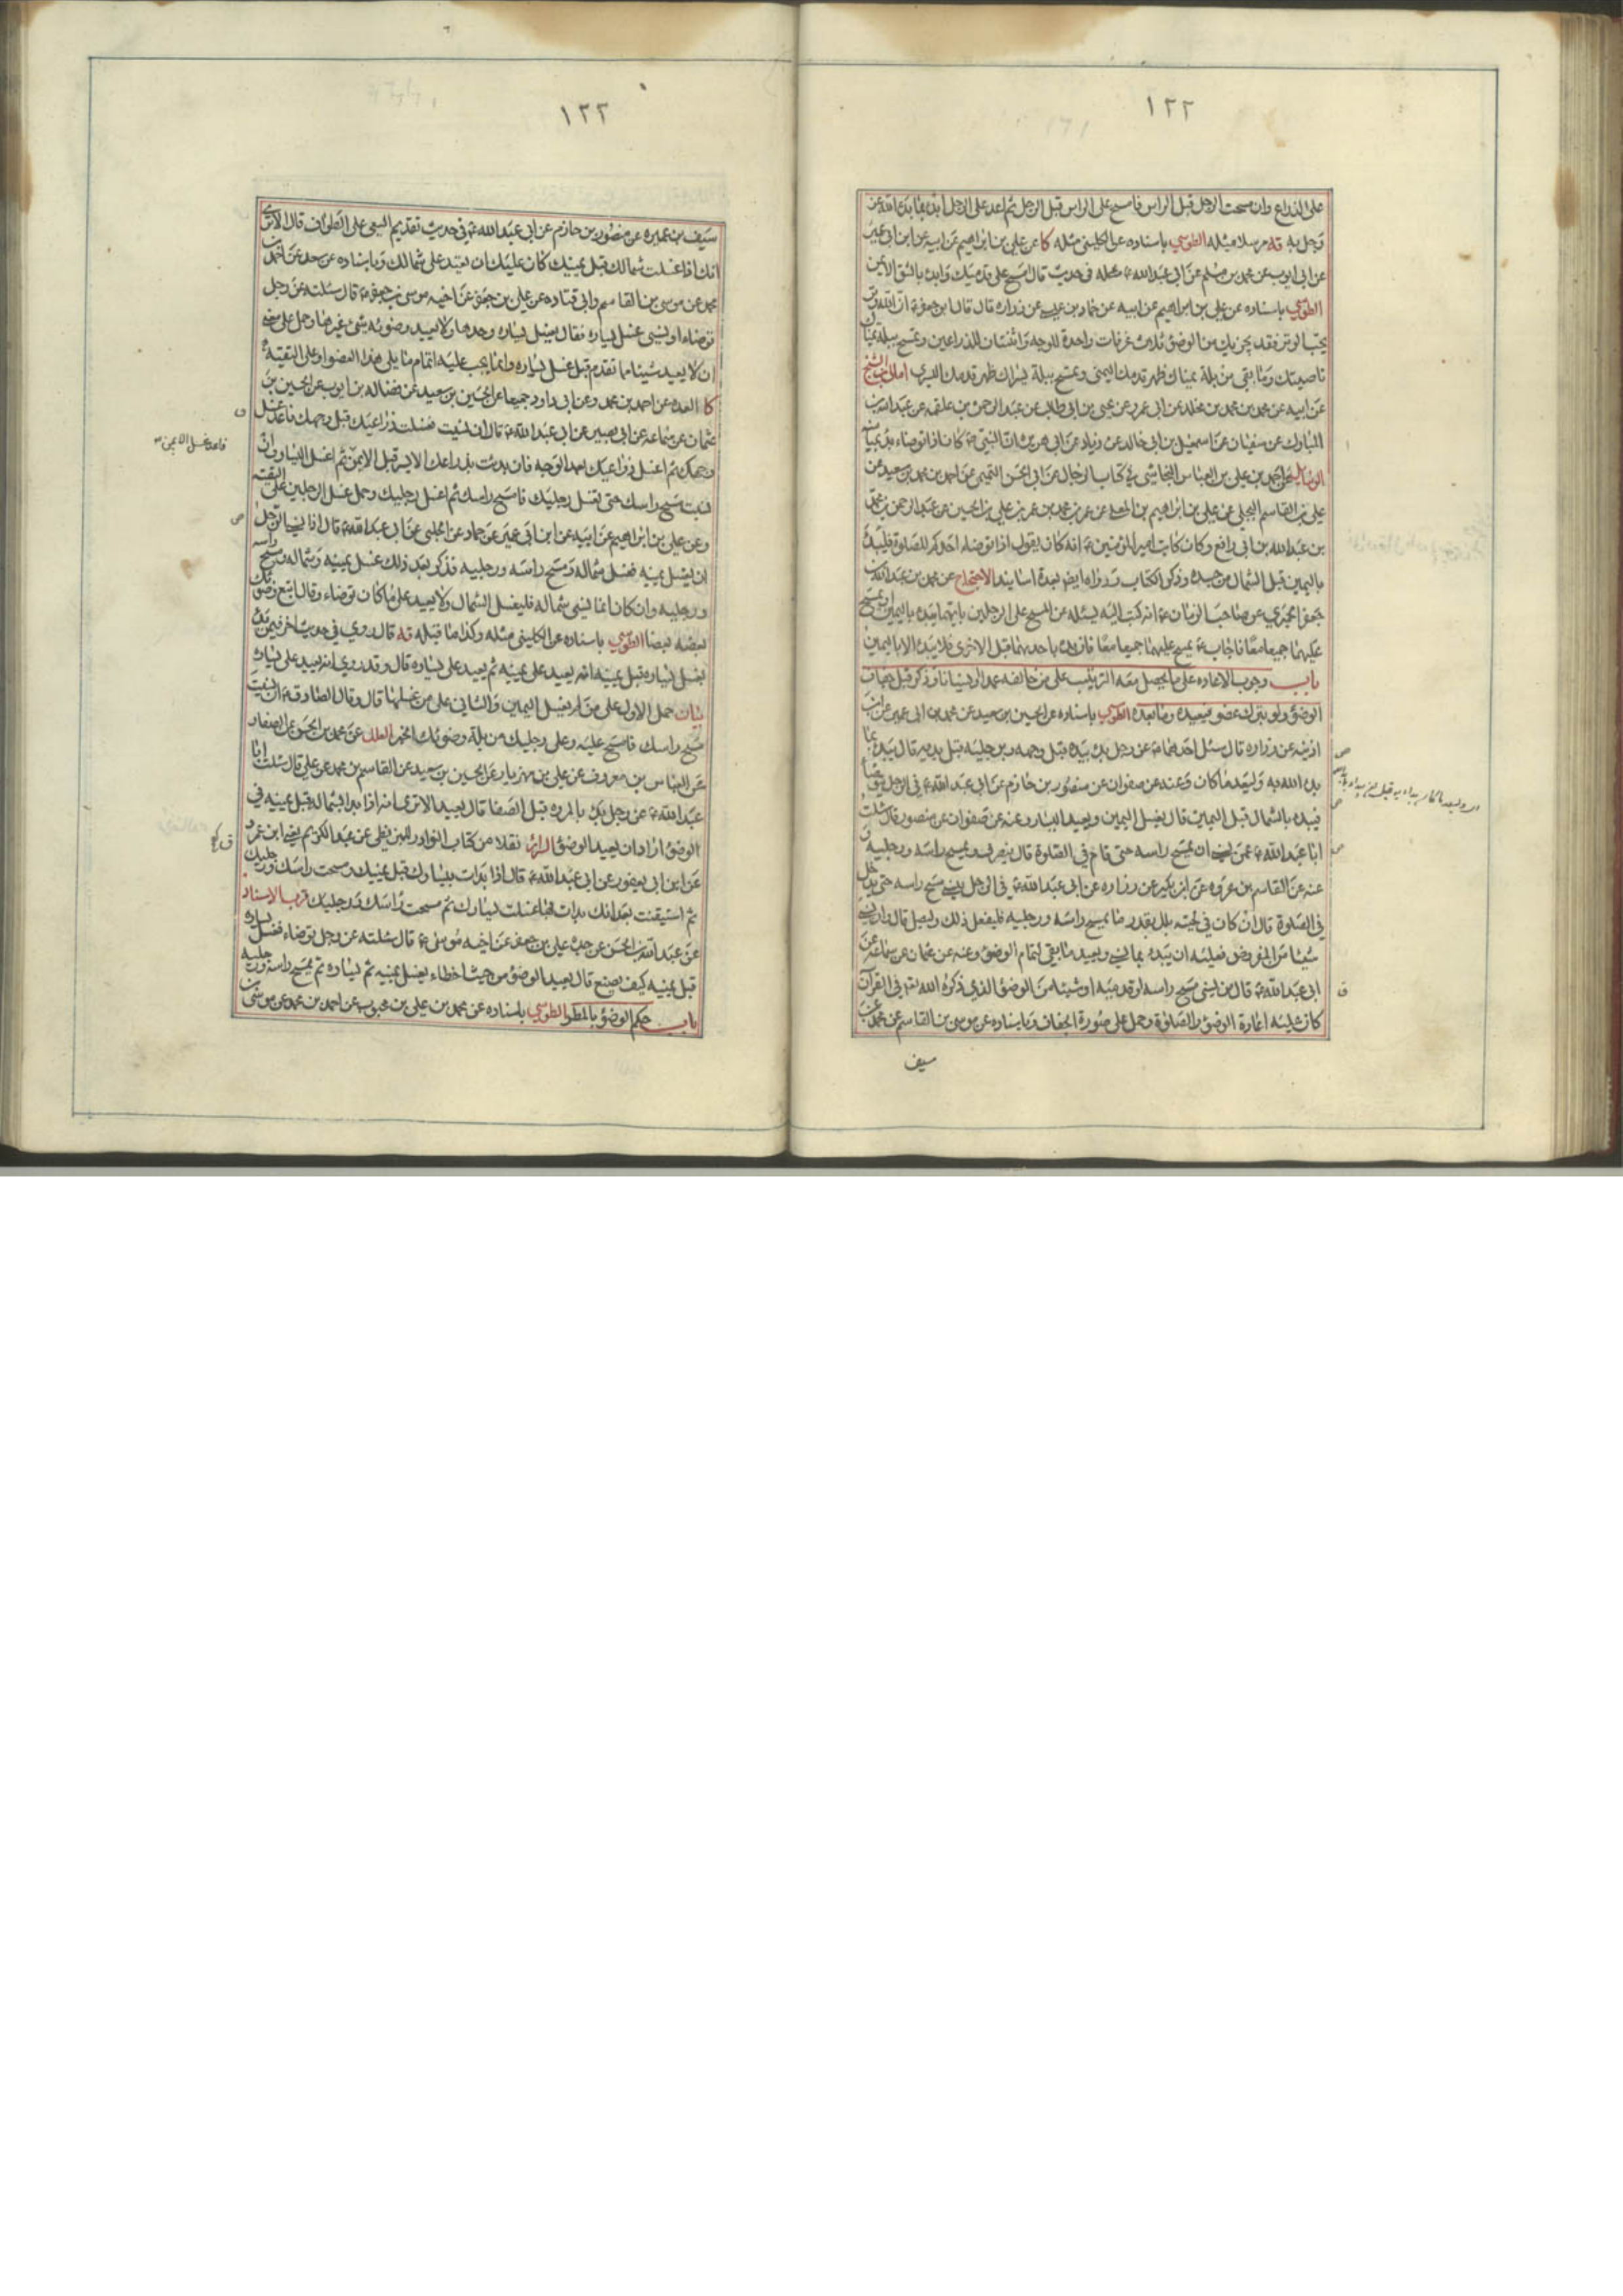 ١٢٢
على الذراع وان مسحت الرجل قبل الراس فامسح على الراس قبل الرجل ثم اعد على الرجل ابدء بما بدء الله عز
وجل به قه مرسلا مثله الطوسي باسناده عن الكليني مثله كا عن علي بن ابراهيم عن ابيه عن ابن ابي عمير
عن ابي ايوب عن محمد بن مسلم عن ابي عبد الله ع مثله في حديث قال امسح على قدميك وابدء بالشق الايمن
الطوسي باسناده عن علي بن ابراهيم عن ابيه عن حماد بن عيسى عن زراره قال قال ابو جعفر ع ان الله وتر
يحب الوتر فقد يجزيك من الوضوء ثلاث غرفات واحدة للوجه واثنتان للذراعين وتمسح ببلة يمناك
ناصيتك وما بقي من بلة يمناك ظهر قدمك اليمنى وتمسح ببلة يسراك ظهر قدمك اليسرى امالي ابن الشيخ
عن ابيه عن محمد بن محمد بن مخلد عن ابي عمرو عن يحيى بن ابي طالب عن عبد الرحمن بن علقمه عن عبد الله بن
المبارك عن سفيان عن اسمعيل بن ابي خالد عن زياد عن ابي هريرة ان النبي ص كان اذا توضاء بدء بميامنه
الوسائل عن احمد بن علي بن العباس النجاشي في كتاب الرجال عن ابي الحسن التميمي عن احمد بن محمد بن سعيد عن
علي بن القاسم البجلي عن علي بن ابراهيم بن المعلى عن عمر بن محمد بن عمر بن علي بن الحسين عن عبد الرحمن بن محمد
بن عبد الله بن ابي رافع وكان كاتب امير المؤمنين ع انه كان يقول اذا توضاء احدكم للصلوة فليبدء
باليمين قبل الشمال من جسده وذكر الكتاب ورواه ايضا بعدة اسانيد الاحتجاج عن محمد بن عبد الله بن
جعفر الحميري عن صاحب الزمان ع انه كتب اليه يسئله عن المسح على الرجلين بايتهما يبدء باليمين او يمسح
عليهما جميعا معا فاجاب ع يمسح عليهما جميعا معا فان بدء باحدهما قبل الاخرى فلا يبدء الا باليمين
باب وجوب الاعاده على ما يحصل معه الترتيب على من خالفه عمدا او نسيانا وذكر قبل جفاف
الوضوء ولو بترك عضو فيعيده وما بعده الطوسي باسناده عن الحسين بن سعيد عن محمد بن ابي عمير عن ابن
اذينه عن زراره قال سئل احدهما ع عن رجل بدء بيده قبل وجهه وبرجليه قبل يديه قال يبدء بما
بدء الله به وليعد ما كان وعنه عن صفوان عن منصور بن حازم عن ابي عبد الله ع في الرجل يتوضأ
فيبدء بالشمال قبل اليمين قال يغسل اليمين ويعيد اليسار وعنه عن صفوان عن منصور قال سئلت
ابا عبد الله ع عمن نسي ان يمسح راسه حتى قام في الصلوة قال ينصرف ويمسح راسه ورجليه و
عنه عن القاسم بن عروه عن ابن بكير عن زراره عن ابي عبد الله ع في الرجل ينسى مسح راسه حتى يدخل
في الصلوة قال ان كان في لحيته بلل بقدر ما يمسح راسه ورجليه فليفعل ذلك وليصل قال وان نسي
شيئا من المفروض فعليه ان يبدء بما نسي ويعيد ما بقي لتمام الوضوء وعنه عن عثمان عن سماعه عن
ابي عبد الله ع قال من نسي مسح راسه او قدميه او شيئا من الوضوء الذي ذكره الله تع في القرآن
كان عليه اعادة الوضوء والصلوة وحمل على صورة الجفاف وباسناده عن موسى بن القاسم عن محمد عن
سيف
١٢٢
سيف بن عميره عن منصور بن حازم عن ابي عبد الله ع في حديث تقديم السعي على الطواف قال الا ترى
انك اذا غسلت شمالك قبل يمينك كان عليك ان تعيد على شمالك وباسناده عن سعد عن احمد بن
محمد عن موسى بن القاسم وابي قتاده عن علي بن جعفر عن اخيه موسى بن جعفر ع قال سئلته عن رجل
توضاء ونسي غسل يساره فقال يغسل يساره وحدها ولا يعيد وضوئه شيء غيرها وحمل على معنى
ان لا يعيد شيئا مما تقدم قبل غسل يساره وانما يجب عليه اتمام ما يلي هذا العضو او على التقية
كا العده عن احمد بن محمد وعن ابي داود جميعا عن الحسين بن سعيد عن فضاله بن ايوب عن الحسين بن
عثمان عن سماعه عن ابي بصير عن ابي عبد الله ع قال ان نسيت فغسلت ذراعيك قبل وجهك فاعد غسل
وجهك ثم اغسل ذراعيك بعد الوجه فان بدءت بذراعك الايسر قبل الايمن ثم اغسل اليسار وان
نسيت مسح راسك حتى تغسل رجليك فامسح راسك ثم اغسل رجليك وحمل غسل الرجلين على التقيه
وعن علي بن ابراهيم عن ابيه عن ابن ابي عمير عن حماد عن الحلبي عن ابي عبد الله ع قال اذا نسي الرجل
ان يغسل يمينه فغسل شماله ومسح راسه ورجليه فذكر بعد ذلك غسل يمينه وشماله ومسح راسه
ورجليه وان كان انما نسي شماله فليغسل الشمال ولا يعيد على ما كان توضاء وقال اتبع وضوئك
بعضه بعضا الطوسي باسناده عن الكليني مثله وكذا ما قبله قه قال روي في حديث اخر فيمن بدء
بغسل يساره قبل يمينه انه يعيد على يمينه ثم يعيد على يساره قال وقد روي انه يعيد على يساره
بيان حمل الاول على من لم يغسل اليمين والثاني على من غسلها قال وقال الصادق ع ان نسيت
مسح راسك فامسح عليه وعلى رجليك من بلة وضوئك الخبر العلل عن محمد بن الحسن عن الصفار
عن العباس بن معروف عن علي بن مهزيار عن الحسين بن سعيد عن القاسم بن محمد عن علي قال سئلت ابا
عبد الله ع عن رجل بدء بالمروه قبل الصفا قال يعيد الا ترى انه اذا بدا بشماله قبل يمينه في
الوضوء اراد ان يعيد الوضوء السرائر نقلا من كتاب النوادر للبزنطي عن عبد الكريم يعني ابن عمرو
عن ابن ابي يعفور عن ابي عبد الله ع قال اذا بدات بيسارك قبل يمينك ومسحت راسك ورجليك
ثم استيقنت بعد انك بدات بها غسلت يسارك ثم مسحت راسك ورجليك قرب الاسناد
عن عبد الله بن الحسن عن جده علي بن جعفر عن اخيه موسى ع قال سئلته عن رجل توضاء فغسل يساره
قبل يمينه كيف يصنع قال يعيد الوضوء من حيث اخطاء يغسل يمينه ثم يساره ثم يمسح راسه ورجليه
باب حكم الوضوء بالمطر الطوسي باسناده عن محمد بن علي بن محبوب عن احمد بن محمد عن موسى بن
فاعد غسل الايمن